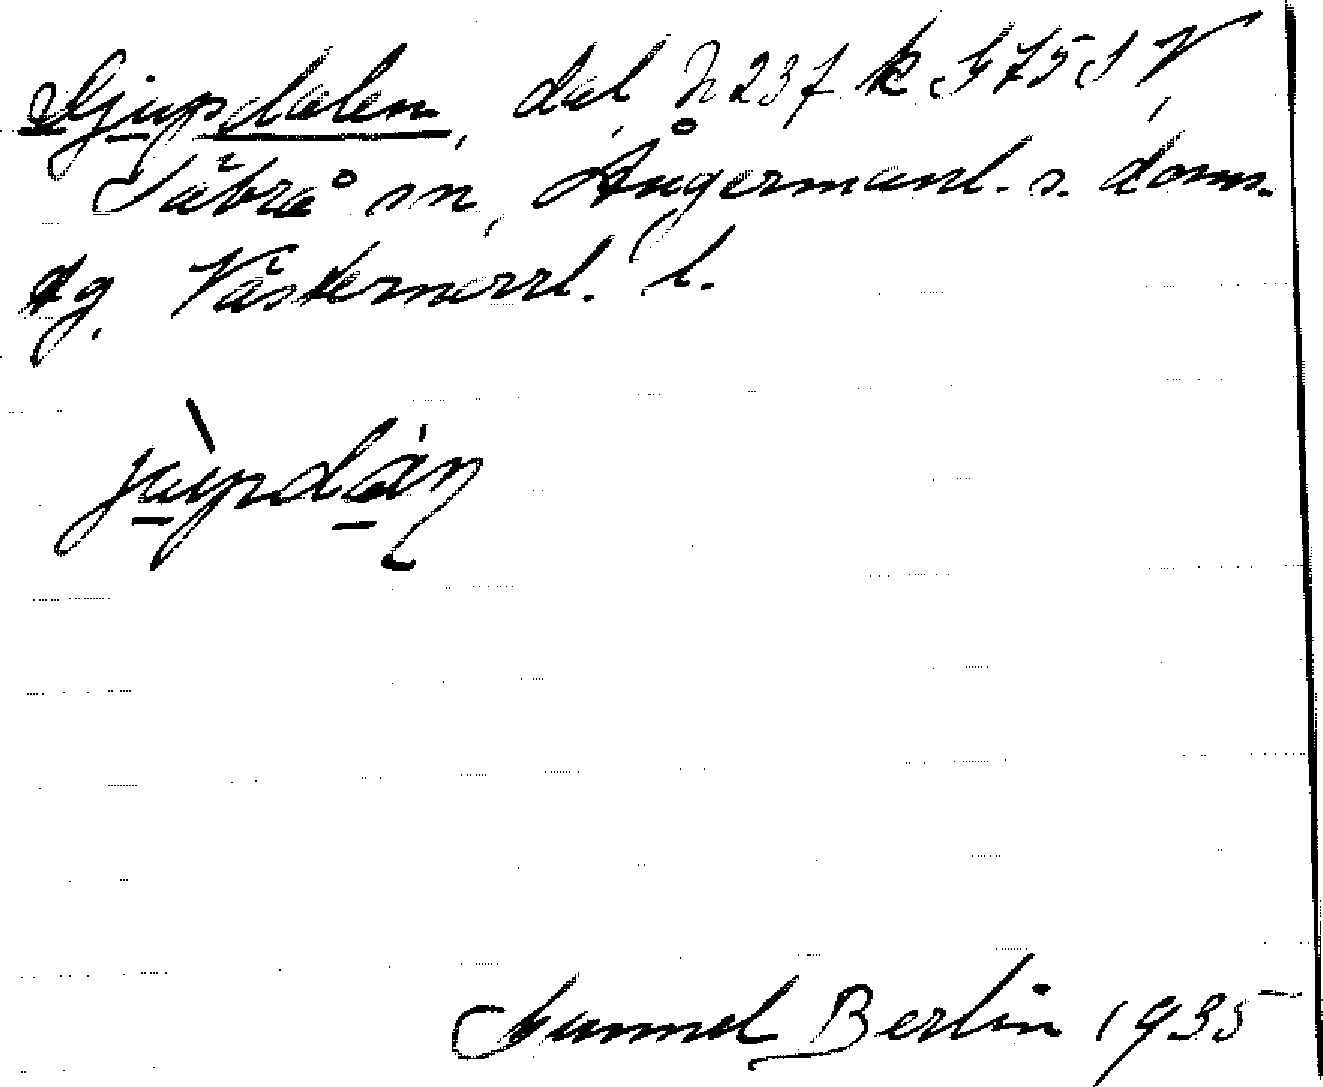 Djupdalen, del, h 237 k S 75 S V,
Säbrå sn, Ångermanl. s. doms.
dg. Västernorrl. l.
jùpdán
Gunnel Berlin 1935